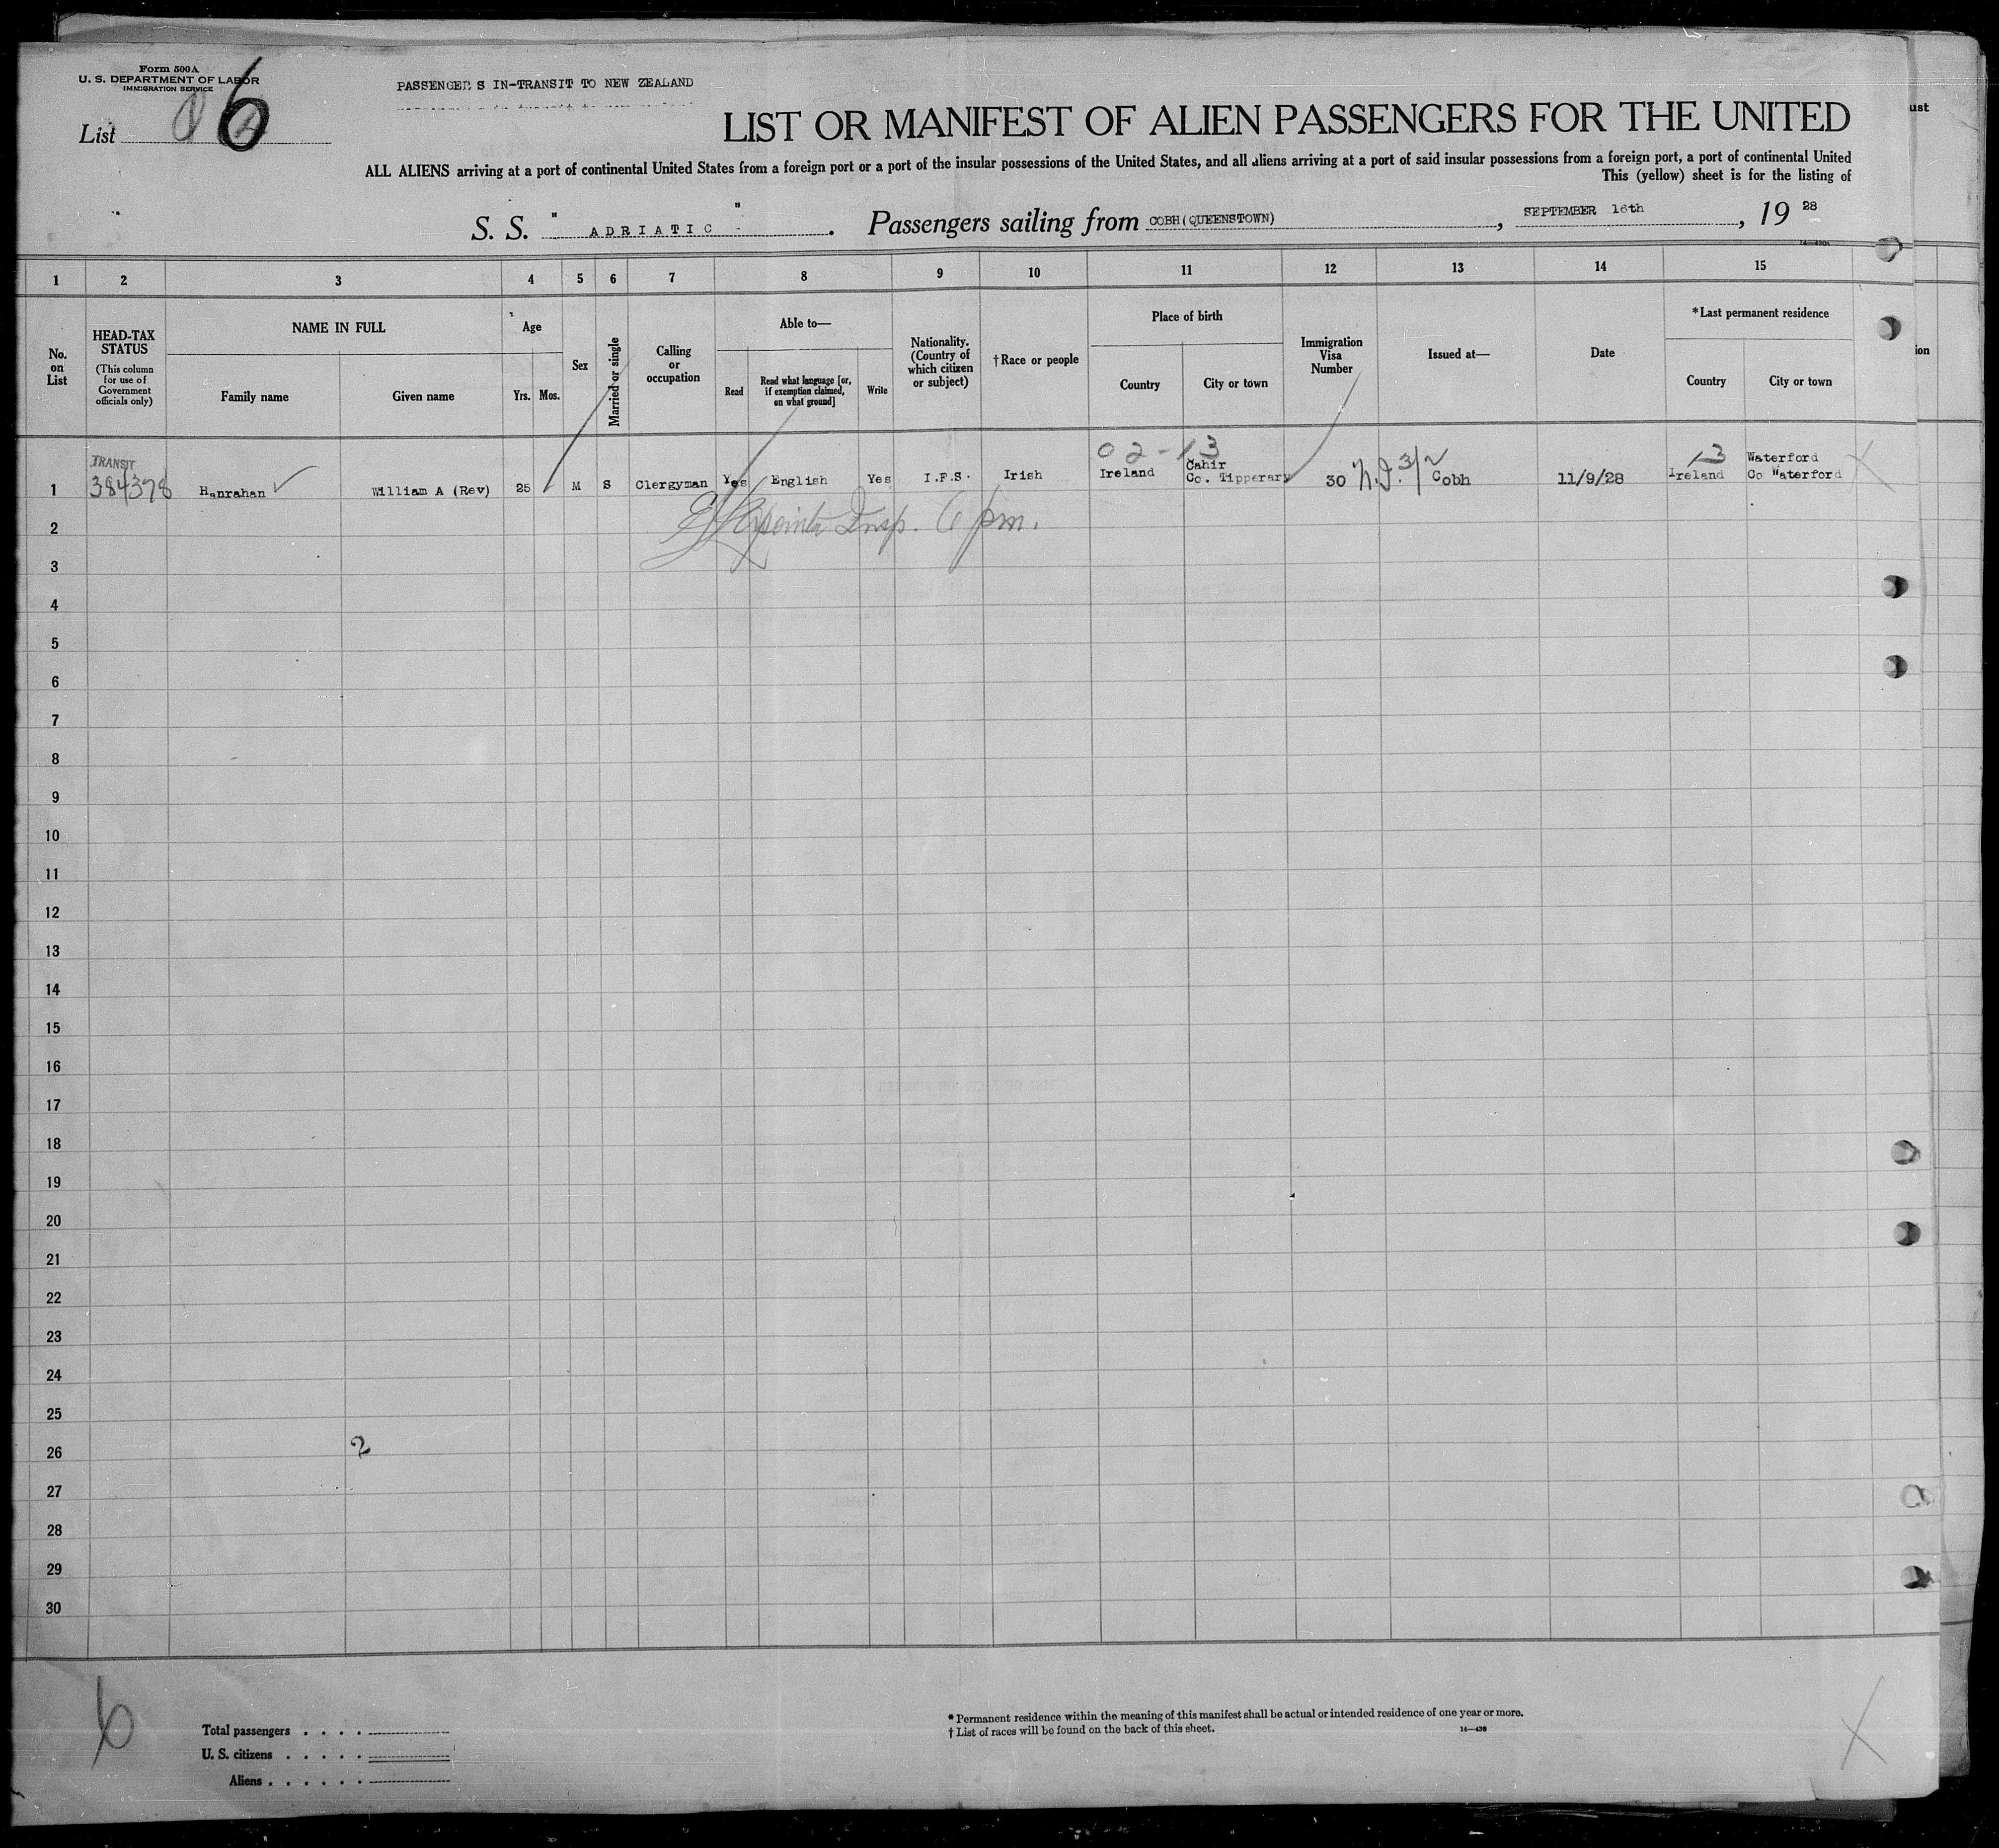 Form 500A
U. S. DEPARTMENT OF LABOR
IMMIGRATION SERVICE
List 6
PASSENGERS IN-TRANSIT TO NEW ZEALAND
LIST OR MANIFEST OF ALIEN PASSENGERS FOR THE UNITED
ALL ALIENS arriving at a port of continental United States from a foreign port or a port of the insular possessions of the United States, and all aliens arriving at a port of said insular possessions from a foreign port, a port of continental United
This (yellow) sheet is for the listing of
S. S. " ADRIATIC " . Passengers sailing from COBH(QUEENSTOWN) , SEPTEMBER 16th , 19 28
ust
ion
1 2 3 4 5 6 7 8 9 10 11 12 13 14 15
No. on List
HEAD-TAX STATUS
(This column for use of Government officials only)
NAME IN FULL
Family name
Given name
Age
Yrs.
Mos.
Sex
Married or single
Calling or occupation
Able to—
Read
Read what language [or, if exemption claimed, on what ground]
Write
Nationality. (Country of which citizen or subject)
†Race or people
Place of birth
Country
City or town
Immigration Visa Number
Issued at—
Date
*Last permanent residence
Country
City or town
02-13
13
TRANSIT
384378
1 Hanrahan William A (Rev) 25 M S Clergyman Yes English Yes I.F.S. Irish Ireland Cahir Co. Tipperary 30 Cobh 11/9/28 Ireland Waterford Co Waterford
Insp. 6 pm.
2
3
4
5
6
7
8
9
10
11
12
13
14
15
16
17
18
19
20
21
22
23
24
25
26 2
27
28
29
30
6
X
Total passengers . . . .
U. S. citizens . . . . .
Aliens . . . . . .
* Permanent residence within the meaning of this manifest shall be actual or intended residence of one year or more.
† List of races will be found on the back of this sheet.
14—430